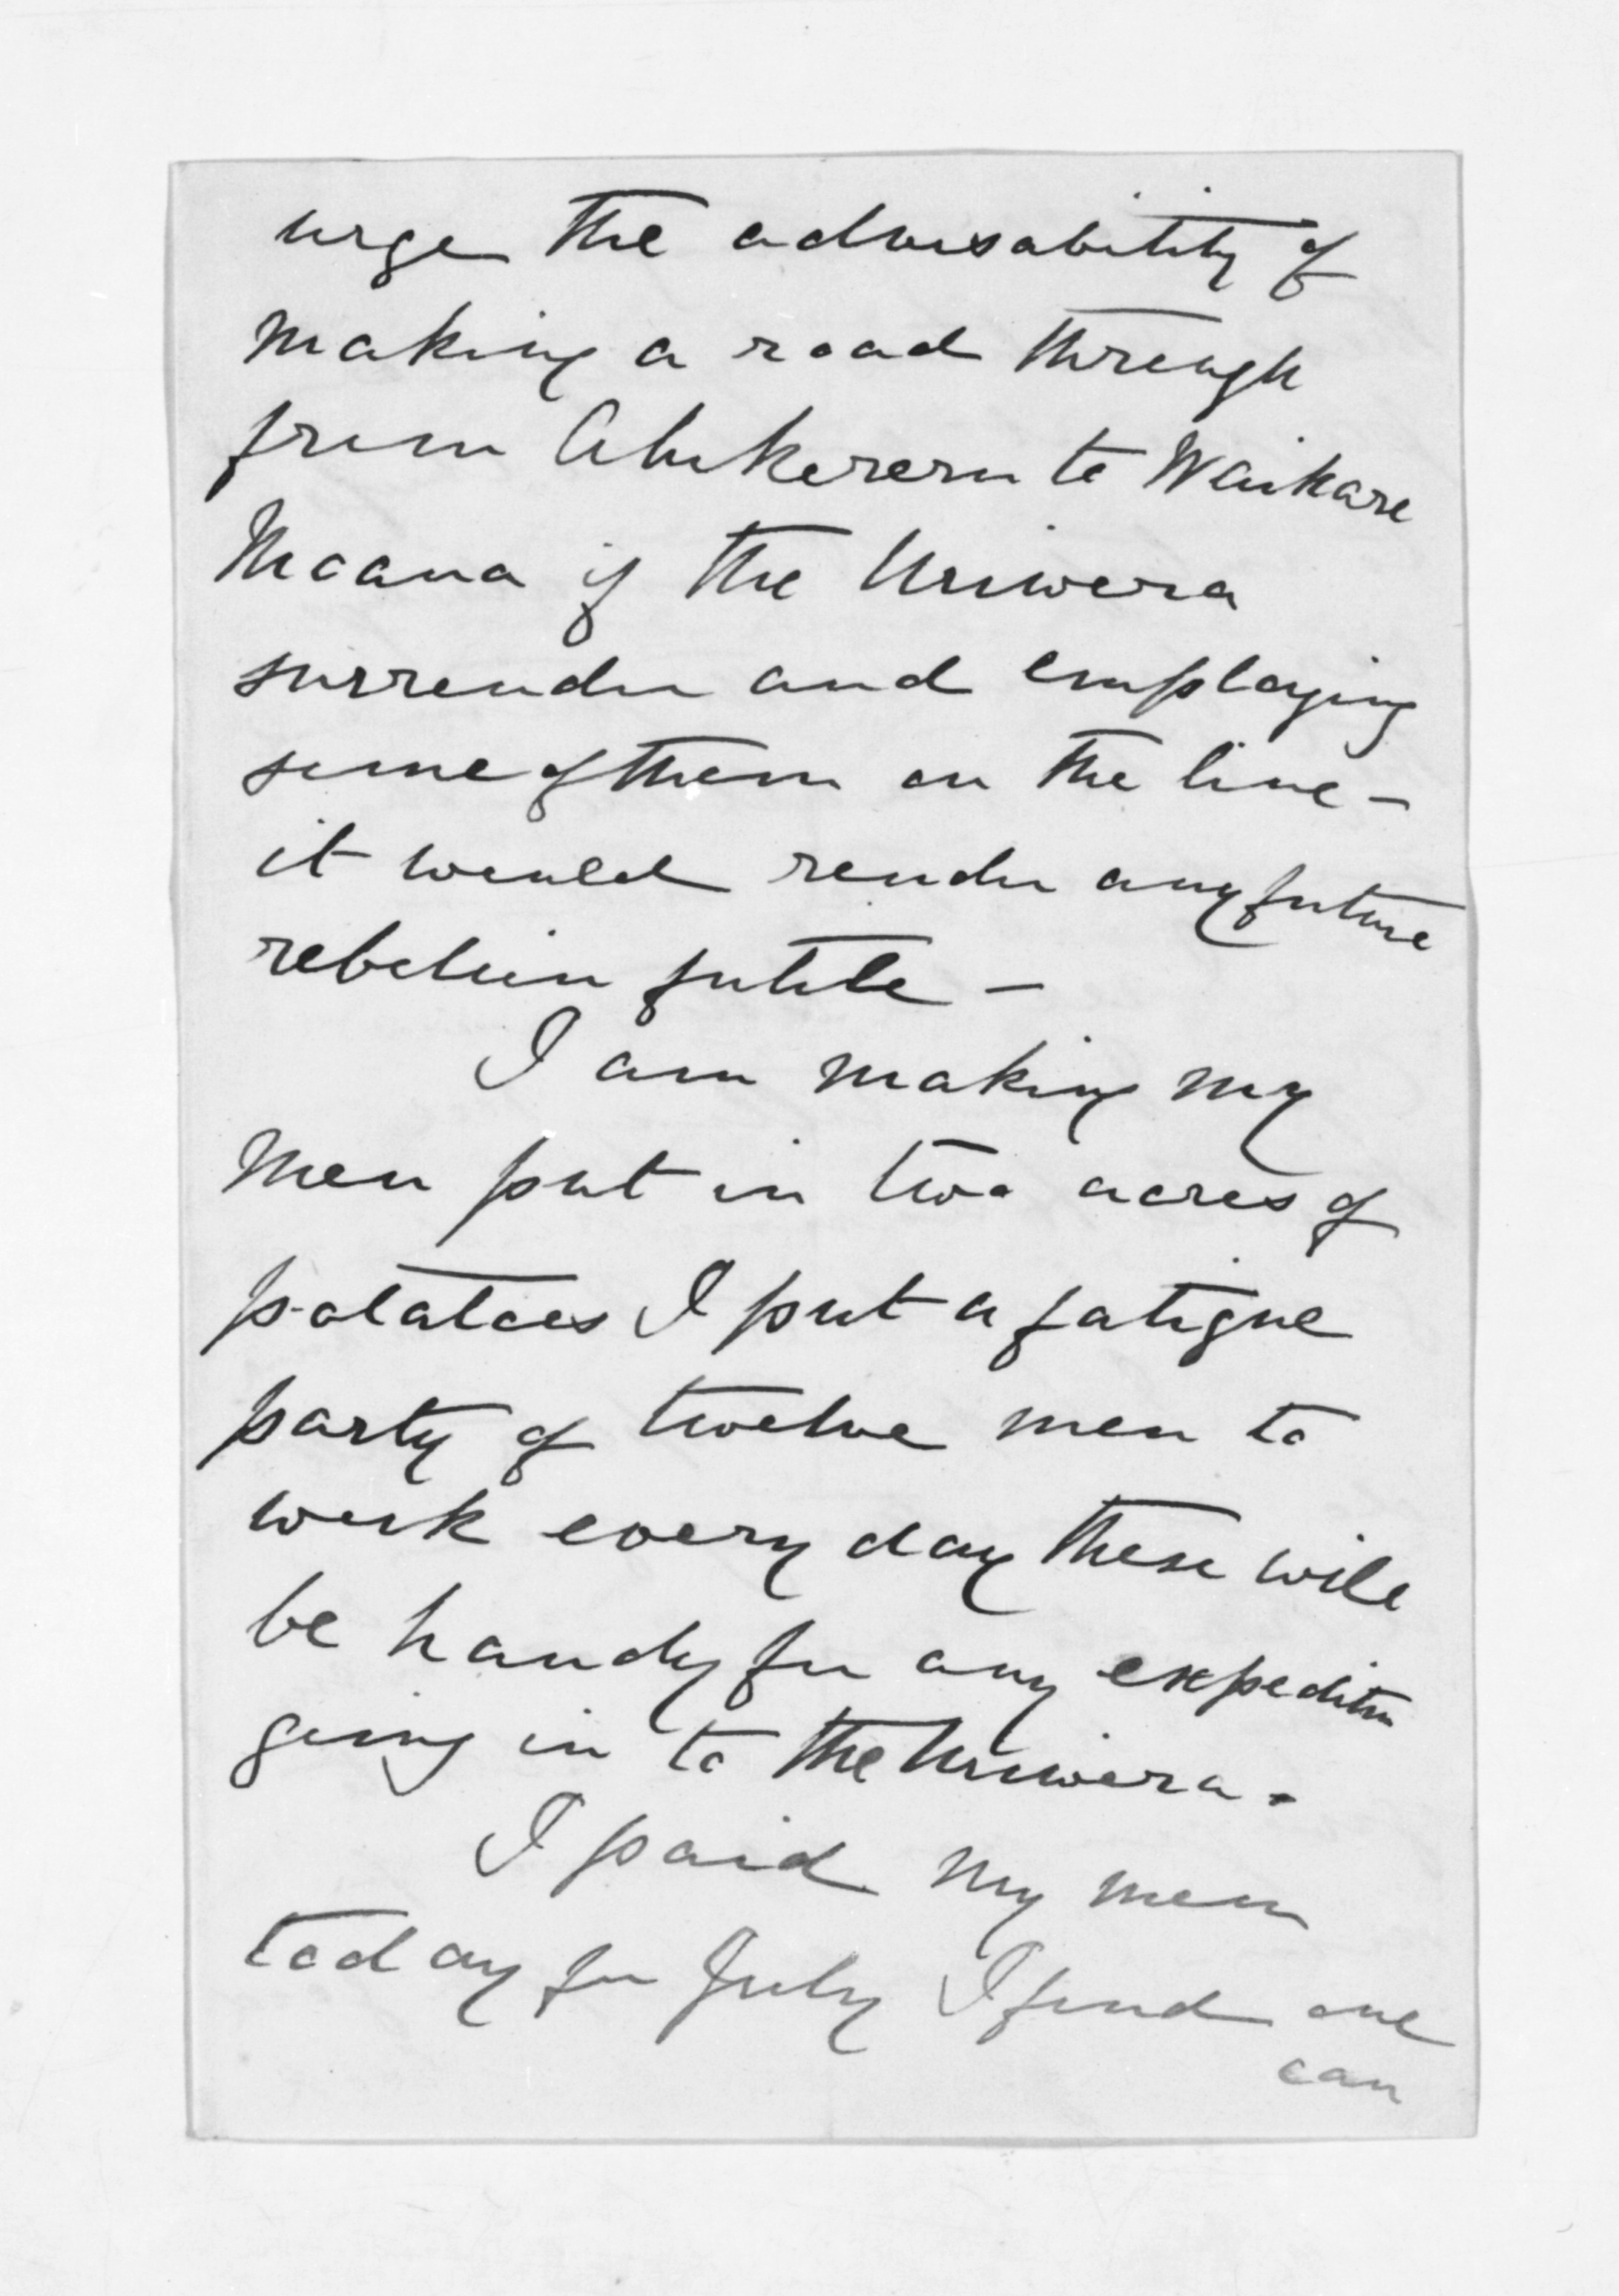 urge the advisability of
making a road through
from Ahikereru to Waikare
Moana if the Uriwera
surrender and employing
some of them on the line -
it would render any future
rebelion futile -
I am making my
men put in two acres of
potatoes I put a fatigue
party of twelve men to
work every day these will
be handy for any expedition
going in to the Uriwera.
I paid my men
today for July I find one
can